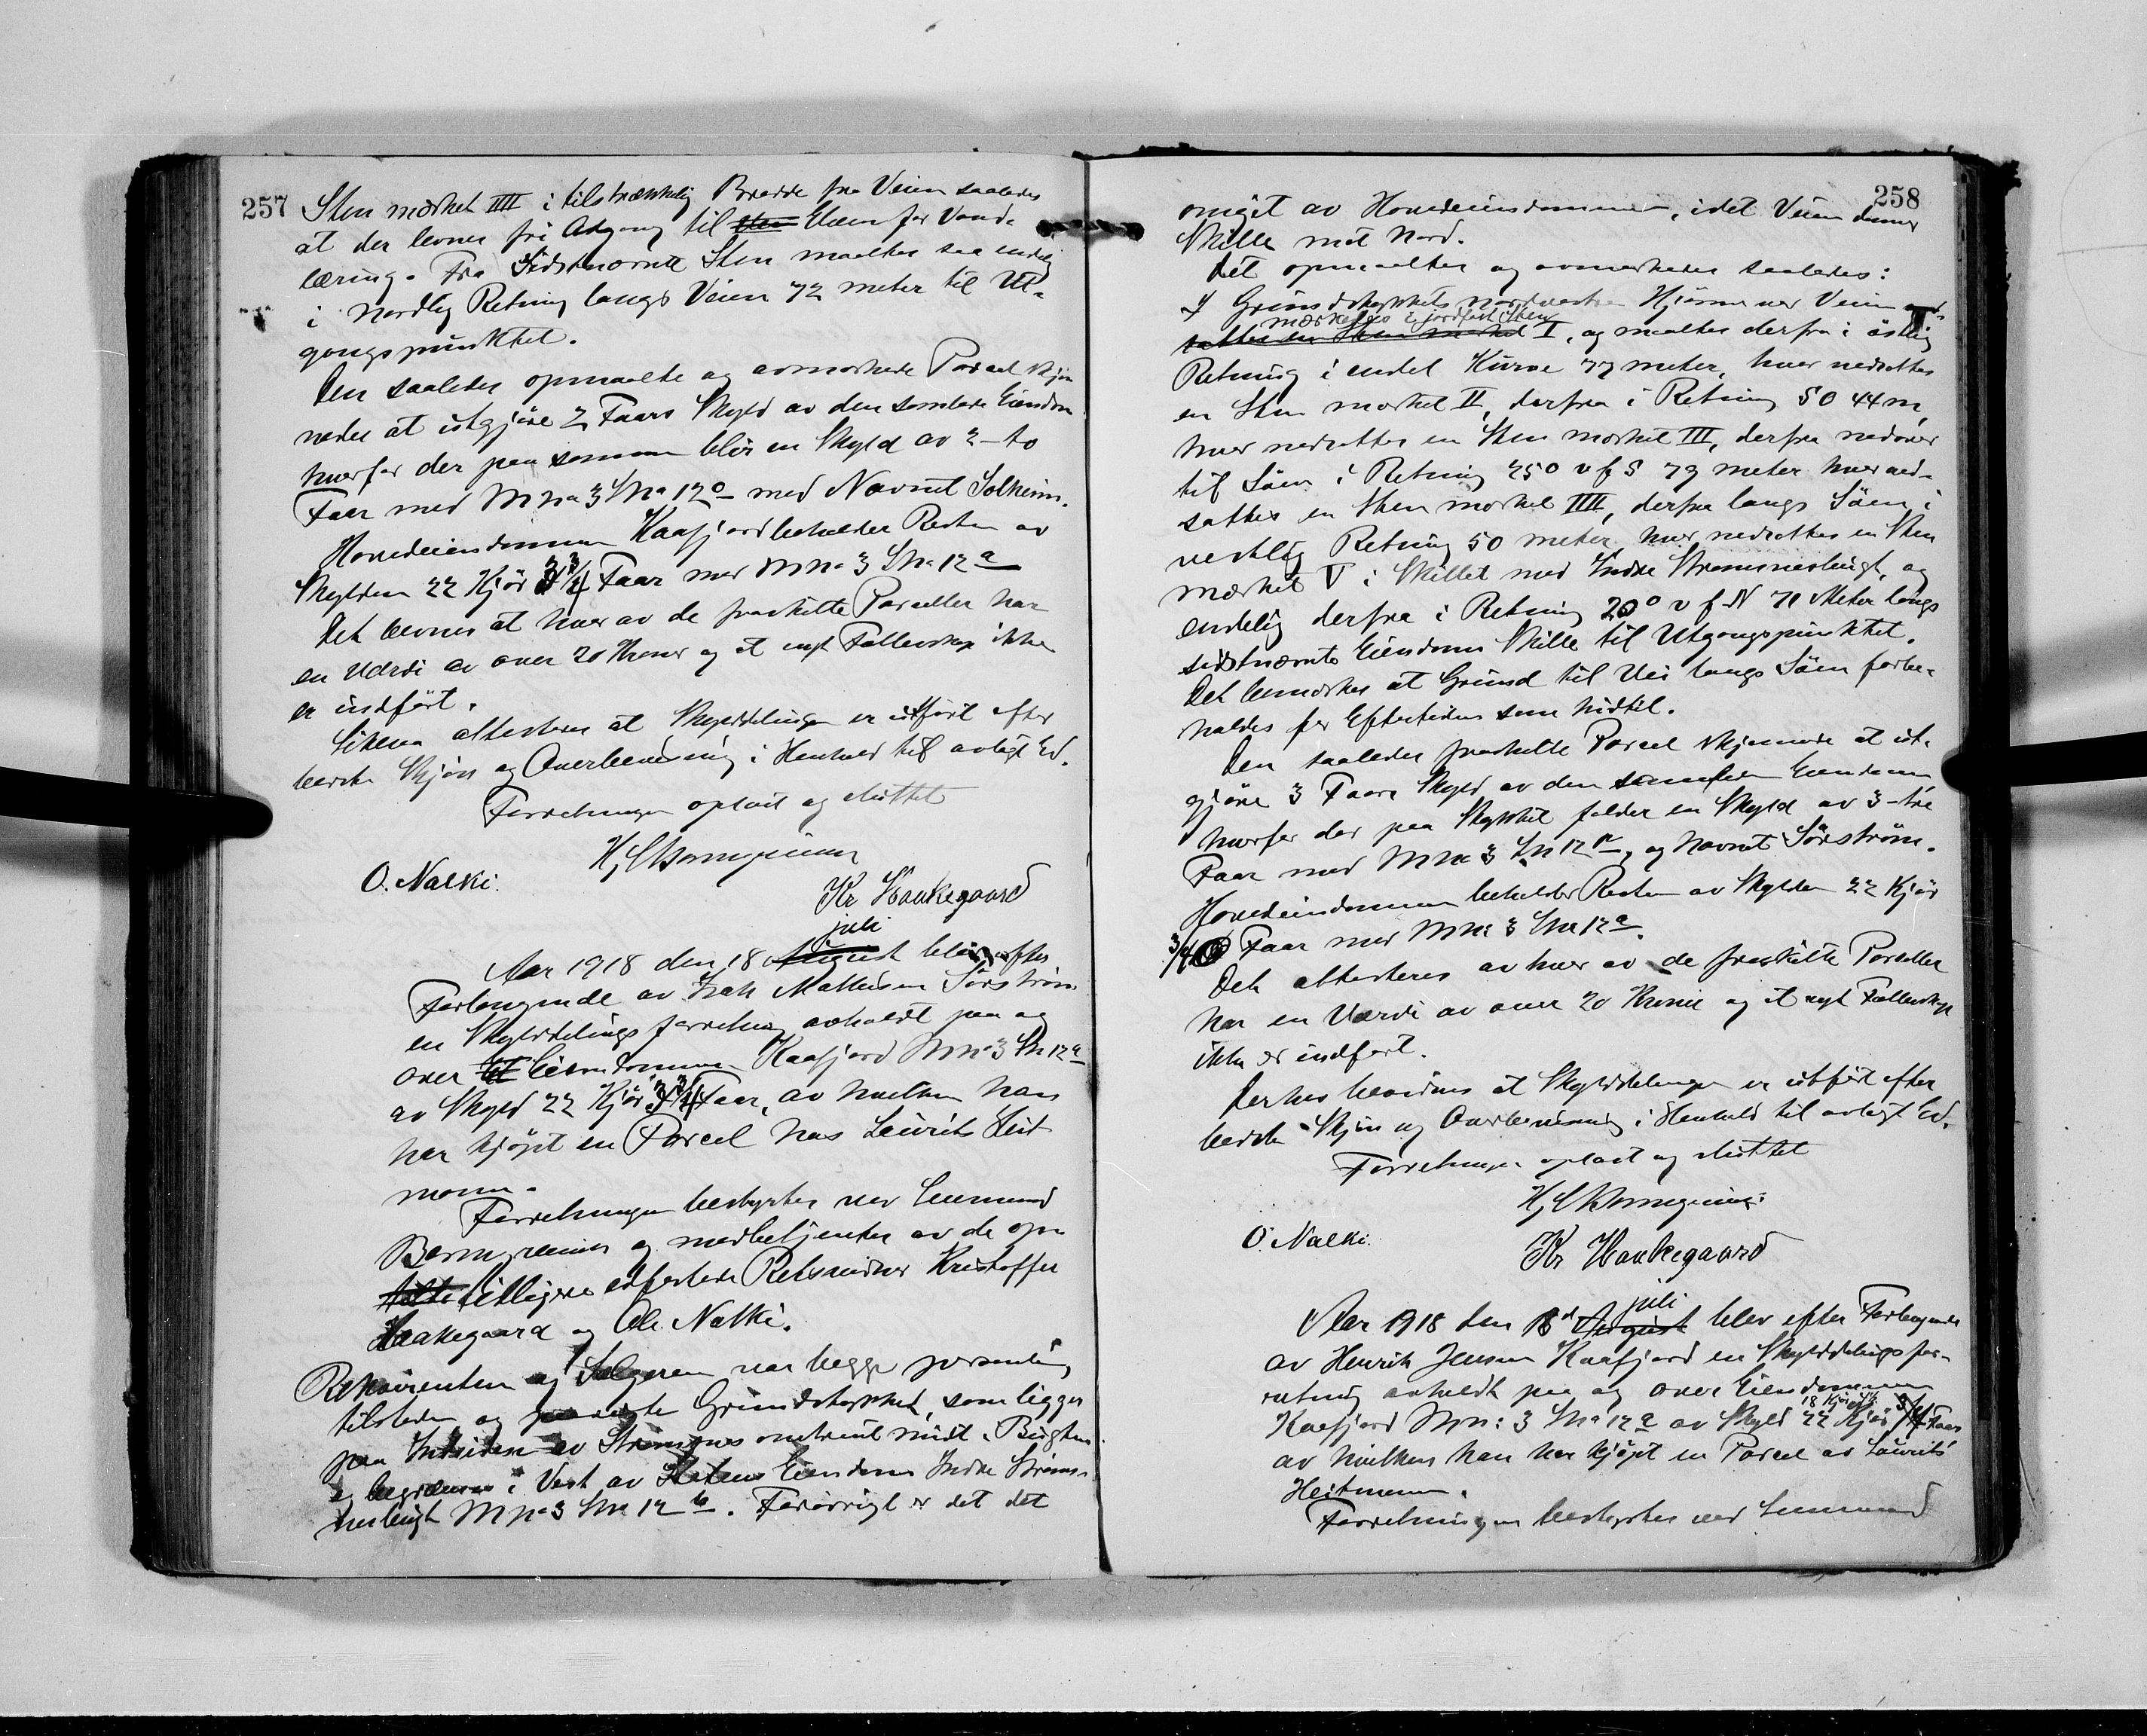 257
Sten mærket IIII i tilstrækkelig Bredde fra Veien saaledes
at der levnes fri Adgang til Elven for Vand-
læring. Fra Sidstnævnte Sten maaltes saa endelig
i nordlig Retning langs Veien 72 meter til Ut-
gangspunktet.
Den saaledes opmaalte og avmerkede Parcel skjøn
nedes at utgjøre 2 Faars Skyld av den samlede Eiendom
hvorfor der paa samme blir en Skyld av 2 - to
Faar med M no 3 Lno 12 o med Navnet Solheim.
Hovedeiendommen Kaafjord beholder Resten av
Skylden 22 Kjør 3 3/4 Faar med M no 3 Lno 12 a
Det levnes at hver av de fraskilte Parceller har
en Værdi av over 20 Kroner og at nyt Fællesskap ikke
er indført.
Likesaa attesteres at Skylddelingen er utført efter
bedste Skjøn og Overbevisning i Henhold til avlagt Ed.
Forretningen oplæst og sluttet
H, C Bomgreinen
O. Nalki.
Kr Haakegaard
juli
Aar 1918 den 18 August blev efter
Forlangende av Isak Mathisen Sørstrøm
en Skylddelingsforretning avholdt paa og
over Eiendommen Kaafjord M no 3 Lno 12 a
av Skyld 22 Kjør 3 3/4 Faar, av hvilken han
har kjøpt en Parcel hos Laurits Heit
mann.
Forretningen bestyrtes ved Lensmand
og medbetjentes av de op
tidligere edfæstede Retsvidner Kristoffer
Haakegaard og Ole Nalki.
Rekvirenten og Selgeren var begge personlig
tilstede og paaviste Grundstykket, som ligger
paa Indsiden av Strømsnes omtrent midt i Bugten
og begrænses i Vest av Eiendom Indre Strøms-
nesbugt M no 3 Lno 12 b. Forøvrigt er det det
258
omgit av Hovedeiendommen, idet Veien danner
Skille mot Nord.
Det opmaaltes og avmerkedes saaledes:
I Grundstykkets nordvestre Hjørne ved Veien
mærkedes i jordfast Sten
sattes en Sten merket I, og maaltes derfra i østlig
Retning i endel Kurve 77 meter, hvor nedsattes
en Sten mærket II, derfra i Retning SO 44 m,
hvor nedsattes en Sten mærket III, derfra nedover
til Søen i Retning 25° v f S 79 meter hvor ned-
sattes en Sten merket IIII, derfra langs Søen i
vestlig Retning 50 meter hvor nedsattes en Sten
mærket V i Skillet med Indre Strømsnesbugt, og
endelig derfra i Retning 20° v f N 71 Meter langs
sidstnævnte Eiendoms Skille til Utgangspunktet.
Det bemerkes at Grund til Vei langs Søen forbe-
holdes for Eftertiden som hidtil.
Den saaledes fraskilte Parcel skjønnedes at ut-
gjøre 3 Faars Skyld av den samlede Eiendom
hvorfor der paa Stykket falder en Skyld av 3 - tre
Faar med M no 3 Lno 12 p, og Navnet Sørstrøm.
Hovedeiendommen beholder Resten av Skylden 22 Kjør
3/4 Faar med M no 3 Lno 12 a.
Det attesteres av hver av de fraskilte Parceller
har en Værdi av over 20 Kroner og at nyt Fællesskap
ikke er indført.
Derhos bevidnes at Skylddelingen er utført efter
bedste Skjøn og Overbevisning i Henhold til avlagt Ed.
Forretningen oplæst og sluttet
H, C Bomgreinen
O. Nalki.
Kr Haakegaard
juli
Aar 1918 den 18 d August blev efter Forlangende
av Henrik Jensen Kaafjord en Skylddelingsfor-
retning avholdt paa og over Eiendommen
Kaafjord M no 3 Lno 12 a av Skyld 22 Kjør 3/4 Faar
av hvilken han har kjøpt en Parcel av Laurits
Heitmann.
Forretningen bestyrtes ved Lensmand